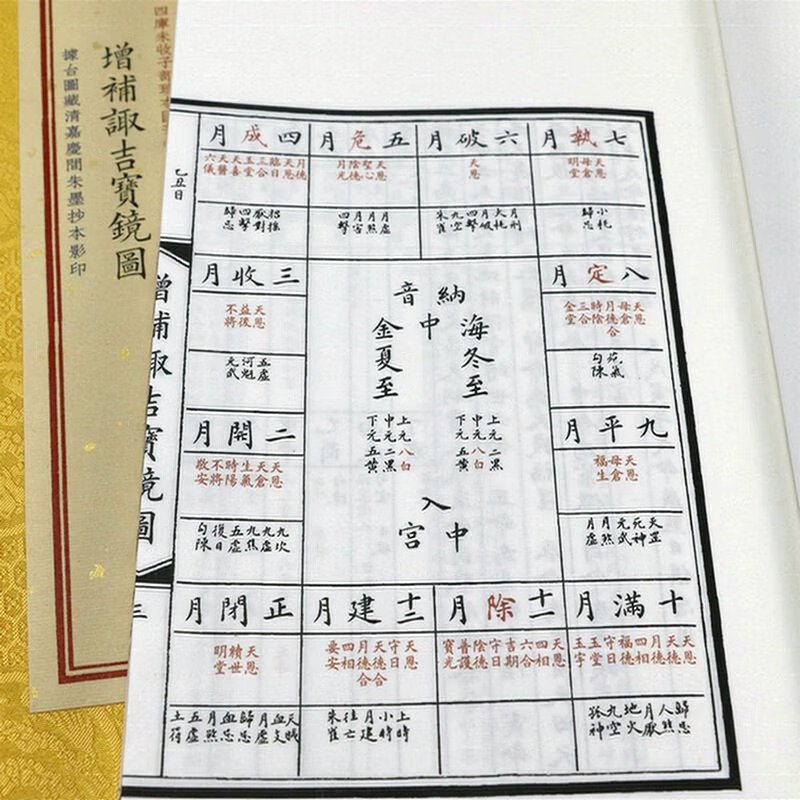 增補諏吉寶鏡圖
據台圖藏清嘉慶間朱墨抄本影印
乙丑日
增補諏吉寶鏡圖
四成月
五危月
六破月
七執月
月德
天恩
臨日
三合
玉堂
天喜
天醫
六儀
招搖
厭對
四擊
歸忌
天恩
聖心
陰德
月虛
月煞
月害
四擊
天恩
月刑
大耗
月破
四擊
九空
朱雀
天恩
母倉
明堂
小耗
歸忌
三收月
天恩
益後
不將
五虛
河魁
元武
八定月
天恩
母倉
月德合
時陰
三合
金堂
死氣
勾陳
二開月
天恩
天倉
生氣
時陽
不將
敬安
九坎
九虛
九焦
五虛
復日
勾陳
九平月
天恩
母倉
福生
天罡
死神
元武
月煞
月虛
納音
海中金
冬至
上元二黑
中元八白
下元五黃
夏至
上元八白
中元二黑
下元五黃
入中宮
正閉月
天恩
續世
明堂
天賊
血支
月虛
歸忌
血忌
月煞
五虛
土符
十二建月
天恩
守日
天德合
月德合
四相
要安
上時
小時
月建
往亡
朱雀
十一除月
天恩
四相
六合
吉期
守日
陰德
普護
寶光
十滿月
天恩
天德
月德
四相
福德
守日
玉堂
玉宇
歸忌
人煞
月厭
地火
九空